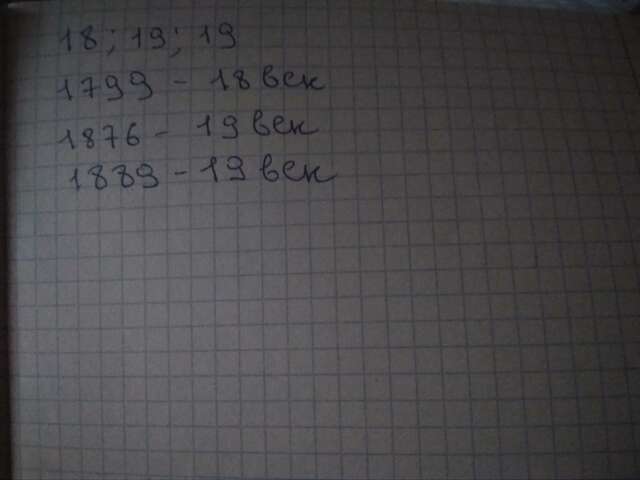 18; 19; 19
1799 - 18 век
1876 - 19 век
1889 - 19 век